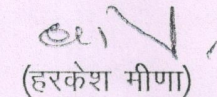 (हरकेश मीणा)